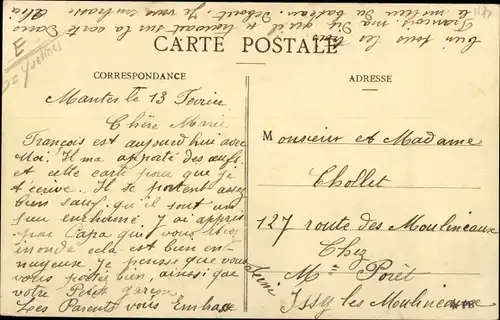 E
= Yvelines
bien tous les trois
François m'a dit qu'il se trouvait sur la carte dans
la moteur du bateau. Debout. Je vous embrasse
CARTE POSTALE
CORRESPONDANCE
Mantes le 13 Fevrier
Chère Marie
François est aujourd'hui avec
Moi. Il m'a apporté des œufs
et cette carte pour que je
t'écrive. Il se portent assez
bien sauf qu'il sont un
peu enrhumé J'ai appris
par Papa que vous étiez
inondé cela est bien en-
nuyeux. Je pense que vous
vous portez bien, ainsi que
votre Petit garçon
Les Parents vous Embrasse
ADRESSE
Monsieur et Madame
Chollet
127 route des Moulineaux
Chez
Mme Porêt
Issy les Moulineaux
Seine